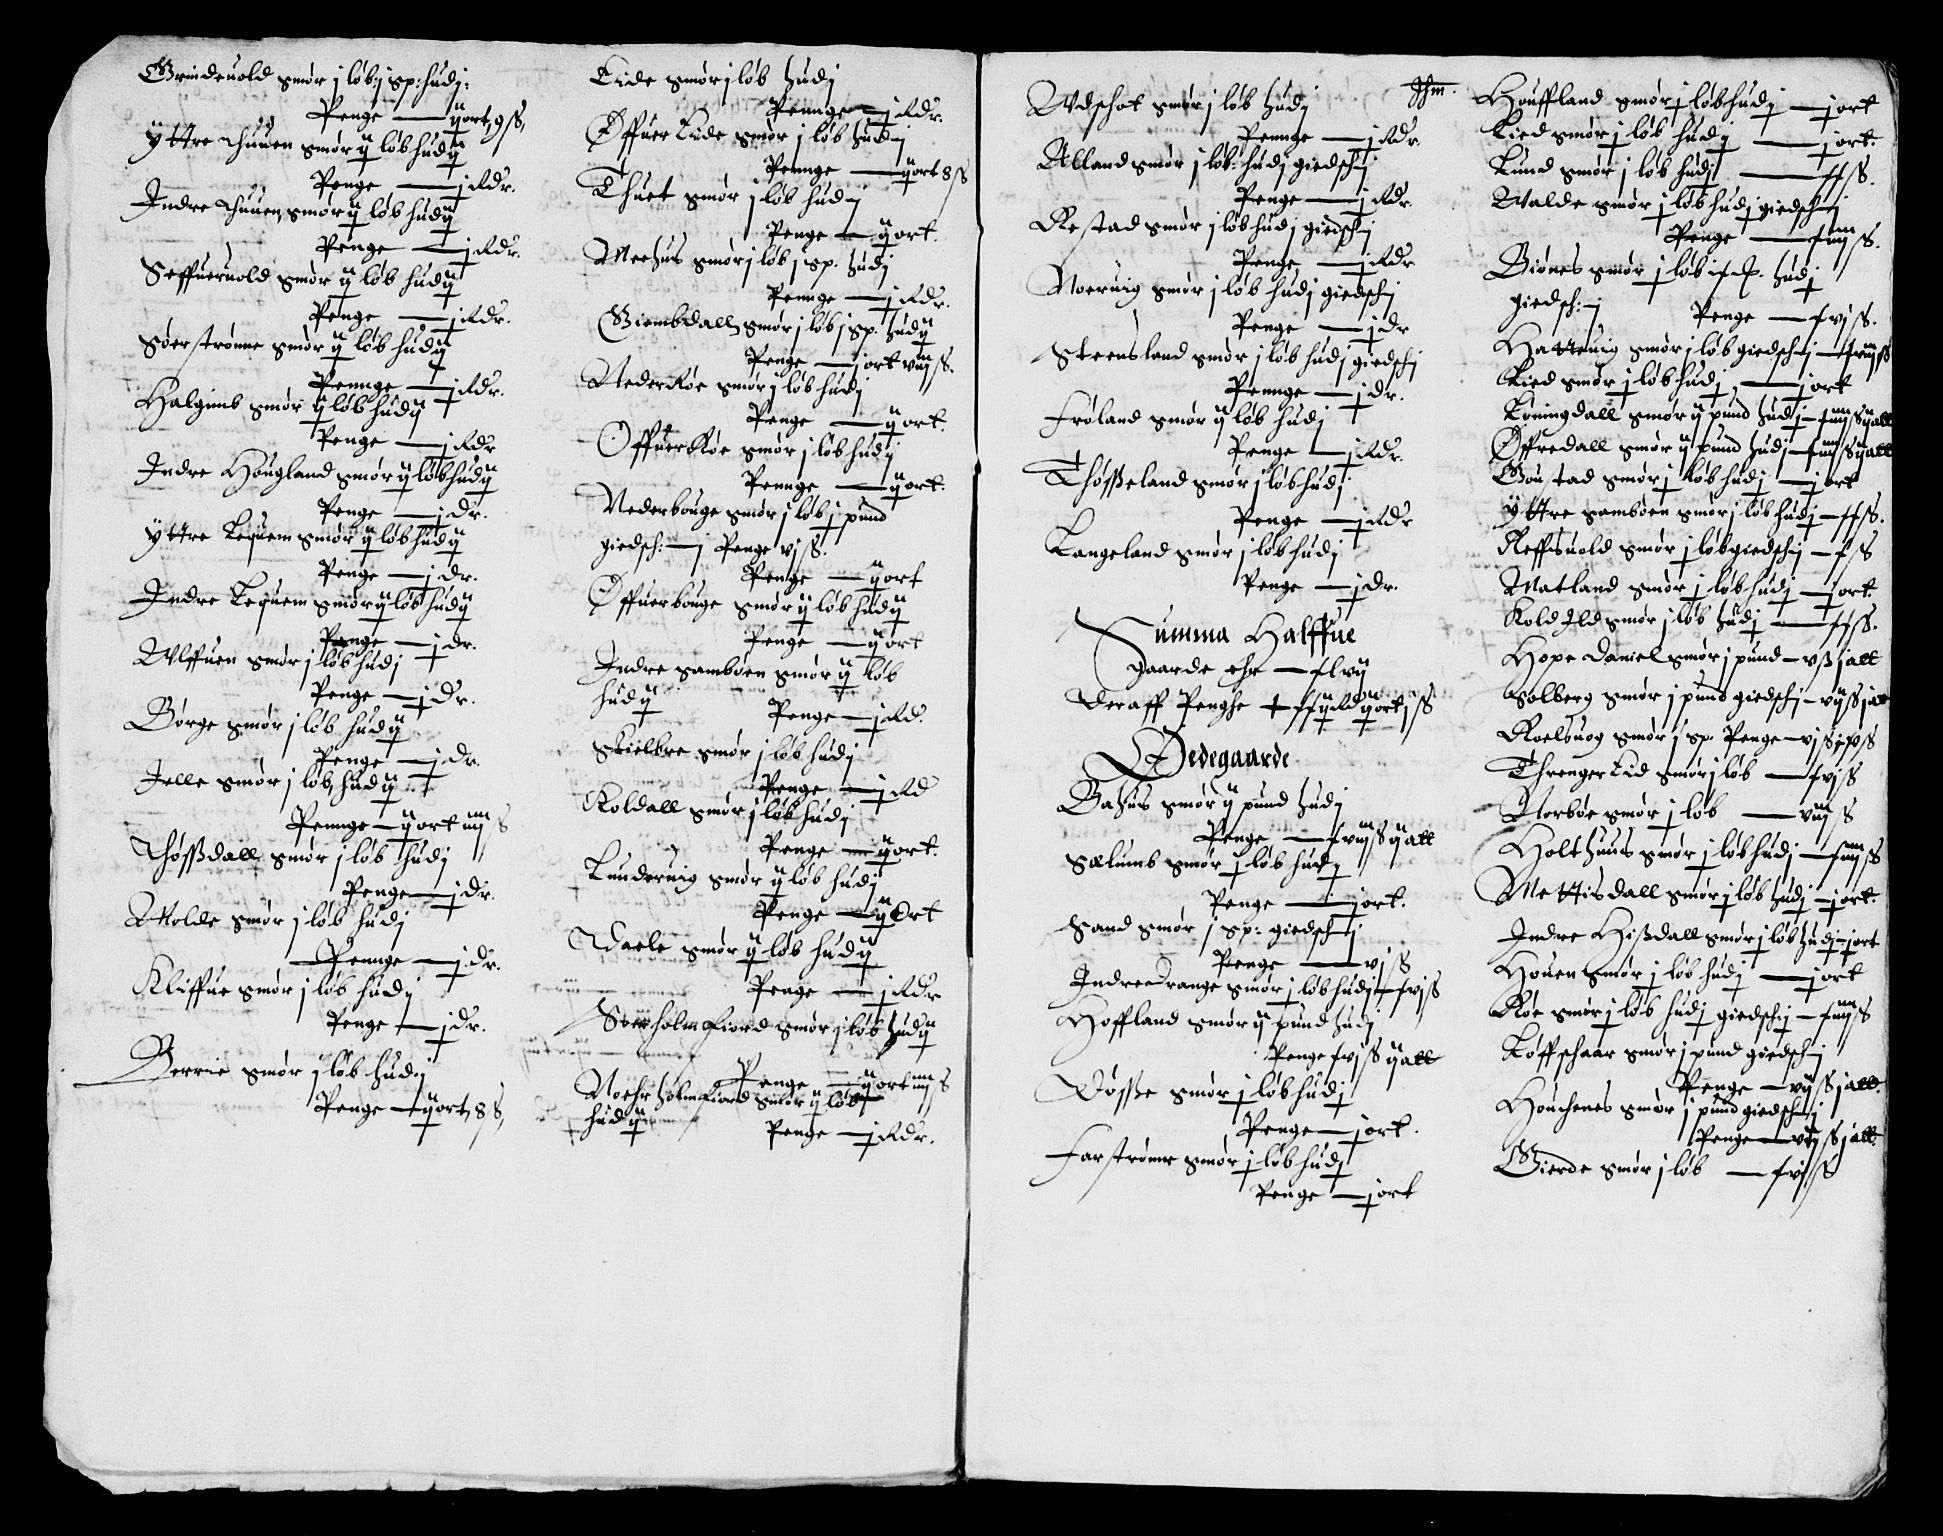 Grindeuold smør j løb j sp: hudj:
Penge — ij ort, 9 ß,
Yttre Thuuen smør ij løb hud ij
Penge — j Rdr.
Indre Thuuen, smør ij løb hud ij
Penge — j Rdr.
Seffueruold smør ij løb hud ij
Penge — j Rdr.
Søerstrønne smør ij løb hud ij
Pennge — j Rdr.
Halgimb smør ij løb hud ij
Penge — j Rdr
Indre Hougland smør ij løb hud ij
Penge — j dr.
Yttre Lequem smør ij løb hud ij
Penge — j dr.
Indre Lequem smør ij løb hud ij
Penge — j dr.
Wlffuen smør j løb hud j
Penge — j dr.
Børge smør j løb hud ij
Penge — j dr.
Jelle smør j løb, hud ij
Pennge — ij ort iiij ß
Thøssdall smør j løb hud j
Penge — j dr.
Molde smør j løb hud j
Pennge — j dr.
Kliffue smør j løb hud j
Penge — j dr.
Berrie smør j løb hud j
Penge — ij ort, 8 ß,
Lide smør j løb hud j
Pennge — j Rdr.
Øffuer Lide smør j løb hud j
Pennge — ij ort 8 ß
Thuet smør j løb hud j
Penge — ij ort.
Meehus smør j løb j sp. hud j
Pennge — j Rdr.
Giembdall, smør j løb j sp. hud ij
Penge — j ort viij ß.
Neder Røe smør j løb hud j
Penge — ij ort.
Offuer Røe smør j løb hud j
Pennge — ij ort.
Nederbouge smør j løb j pund
giedsch: — j Penge vj ß.
Penge — ij ort
Øffuerbouge smør ij løb hud ij
Penge — ij ort
Indre samboen smør ij løb
hud ij
Penge — j Rd.
Skielbre smør j løb hud j
Penge — j Rd
Koldall smør j løb hud j
Penge — ij ort.
Lunderuig smør ij løb hud j
Penge — ij Ort
Daele smør ij løb hud ij
Penge — j Rdr
Søerholmefiord smør j løb hud ij
Penge — ij ort iiij ß
Noehrholmefiord smør ij løb
hud ij
Penge — j Rdr.
Wdschot smør j løb hud j
Pennge — j Rdr
Alland smør j løb: hud j giedsch j
Penge — j Rdr.
Restad smør j løb hud j giedsch j
Penge — j Rdr
Noeruig smør j løb hud j giedsch j
Penge — j dr
Steensland smør j løb hud j giedsch j
Pennge — j dr.
Frøland smør ij løb hud j
Penge — j Rdr.
Thøsseland smør j løb hud j
Penge — j Rdr
Langeland smør j løb hud j
Penge — j dr.
Summa Halffue
gaarde ehr — xlvij
Deraff Penghe
Ødegaarde
Bahus smør ij pund hud j
Penge — xviij ß ij alb
Sælumb smør j løb hud j
Penge — j ort.
Sand smør j sp: giedsch j
Penge — vj ß
Indre Drange smør j løb hud j — xvj ß
Hoffland smør ij pund hud j
Penge xvj ß ij alb
Døsse smør j løb hud j
Penge — j ort.
Farstrømr smør, j løb hud j
Penge — j ort
Houffland smør j løb hud j — j ort
Lied smør j løb hud j — j ort.
Lund smør j løb hud j — xx ß.
Walde smør j løb hud j giedsch j
Penge — xiiij ß.
Biønes smør j løb hud j
giedsch: — j Penge — xvj ß.
Hatteuig smør j løb giedsch j
Lied smør j løb hud j — j ort
Køningdall smør ij pund hud j — xiiij ß ij alb
Øffredall smør ij pund hud j — xiiij ß ij alb
Goustad smør j løb hud j — j ort
Yttre samboen smør j løb hud j — xx ß.
Reffsuold smør j løb giedsch j — x ß
Matland smør j løb hud j — j ort.
Kold Ild smør j løb hud j — xx ß.
Hope Daniel smør j pund — v ß j alb
Solberg smør j pund giedsch j — vij ß j alb
Roelsuog smør j sp. Penge
Threnger Lid smør j løb — xvj ß
Norbøe smør j løb — viij ß
Holthuus smør j løb hud j — xiiij ß
Mettisdall smør j løb hud j — j ort.
Indre Hissdall smør j løb hud j — j ort
Houen smør j løb hud j — j ort
Røe smør j løb hud j giedsch j — xiiij ß
Løffschaar smør j pund giedsch j
Penge — vij ß j alb.
Houchenes smør j pund giedsch j
Penge — vij ß j alb.
Gierde smør j løb — xvj ß